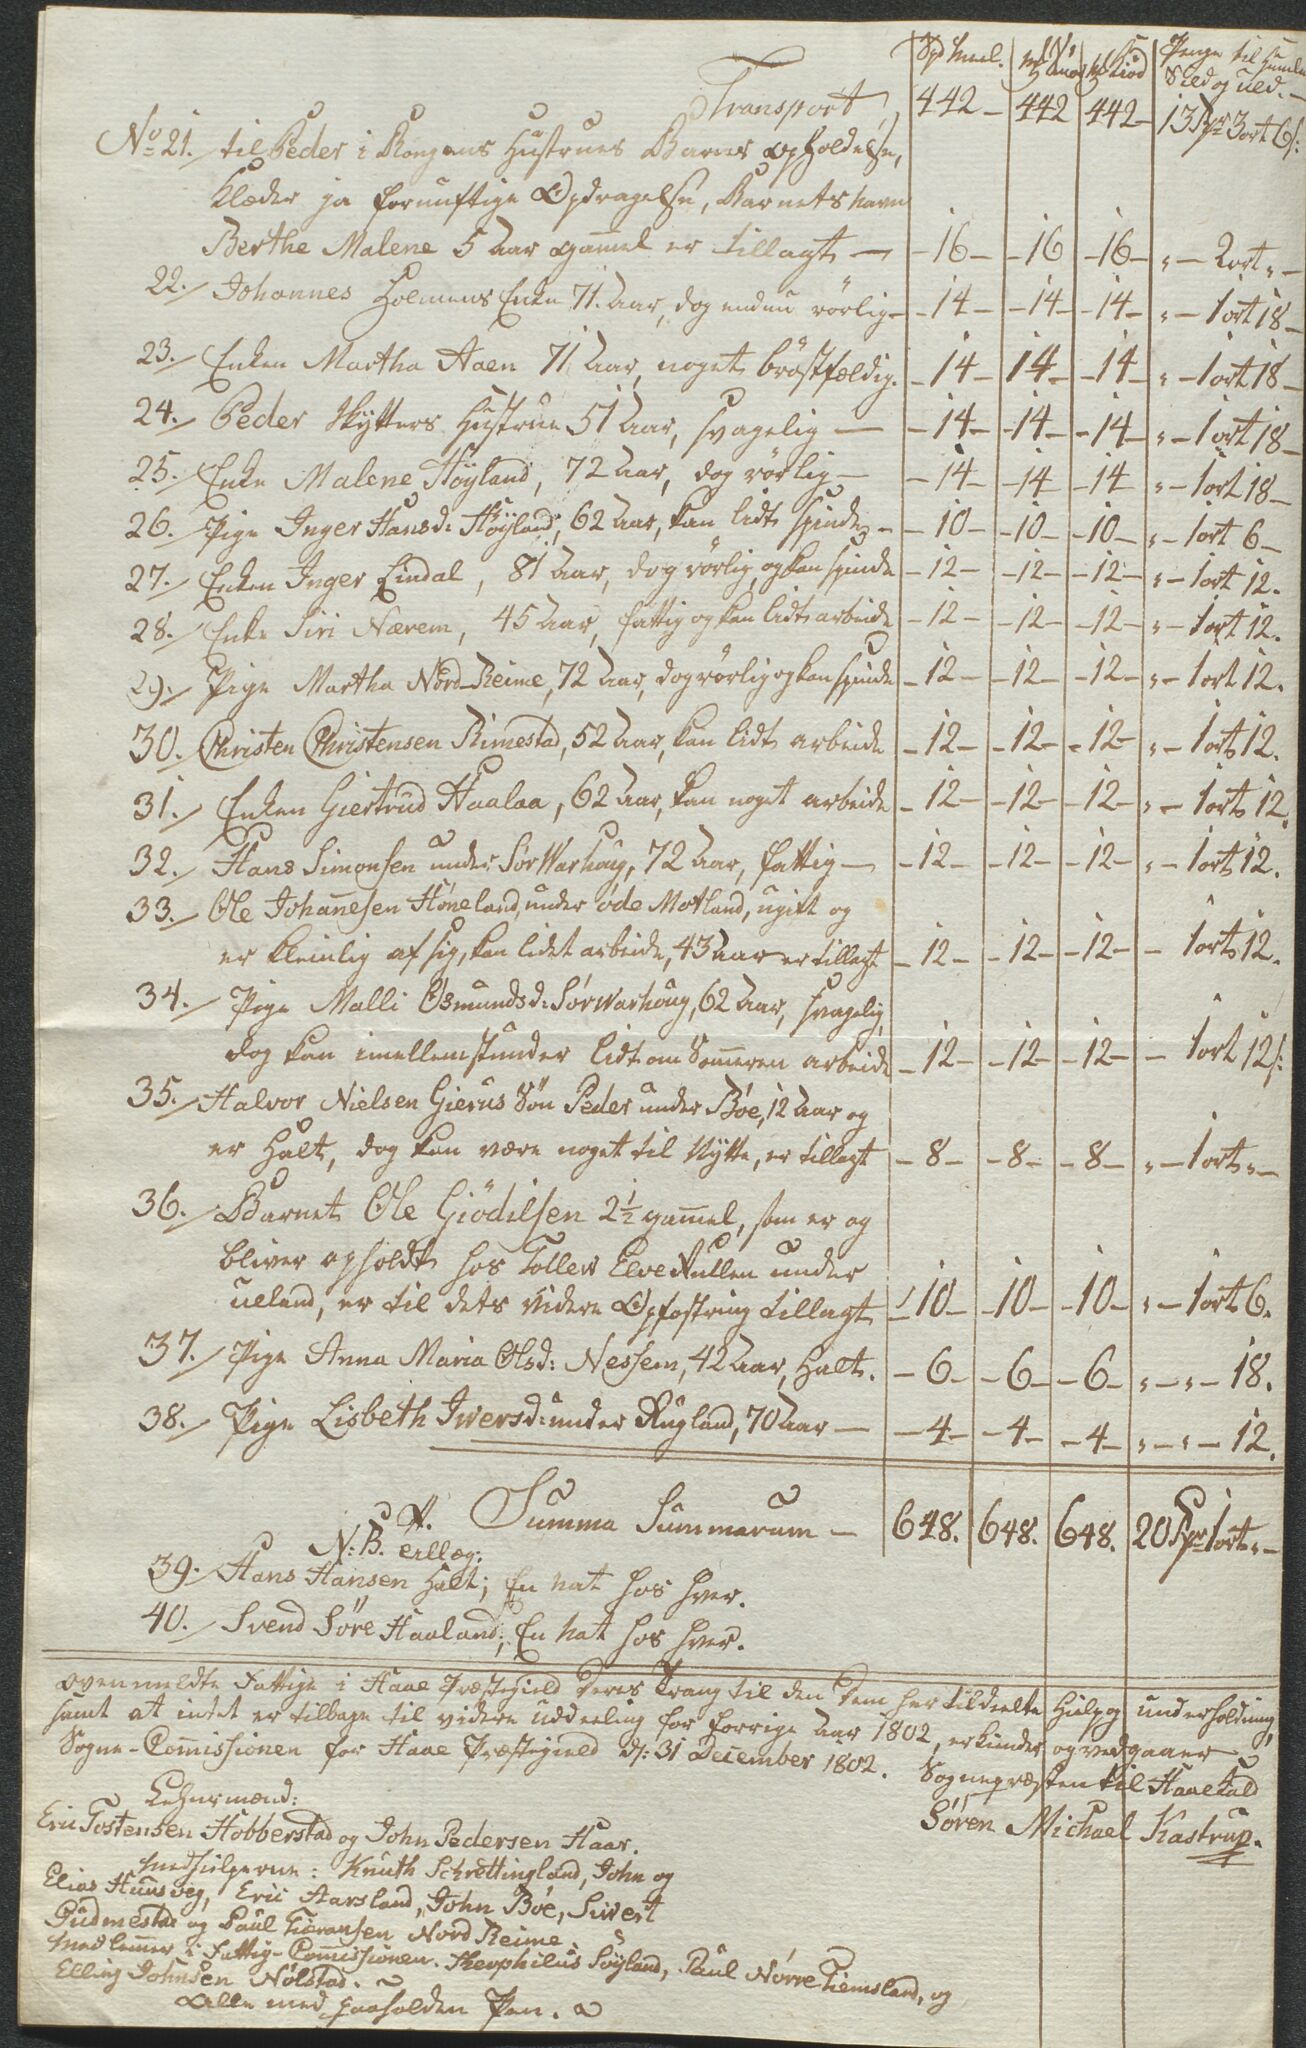 Spd Meel. Penge til Humle
Sild og
Transport, 442 – 442 442 – 13 Spr 3 ort 6 s:
No 21. til Peder i Kongens Hustrues Barns Opholdelse,
Klæder ja fornuftige Opdragelse, Barnets Navn
Berthe Malene 5 Aar gammel er tillagt – – 16 – – 16 – 16 – „ – 2 ort „ –
22. Johannes Holmens Enke 71 Aar, dog endnu rörlig – – 14 – – 14 – 14 – „ – 1 ort 18 –
23. Enken Martha Aaen 71 Aar, noget bröstfældig. – 14 – 14 – – 14 – „ – 1 ort 18 –
24. Peder Skytters Hustrue 51 Aar, svagelig – – 14 – – 14 – – 14 – „ – 1 ort 18 –
25. Enke Malene Höyland, 72 Aar, dog rörlig – – 14 – 14 – 14 „ – 1 ort 18 –
26. Pige Inger Hansd: Höyland, 62 Aar, kan lidt spinde – – 10 – – 10 – – 10 – „ – 1 ort 6 –
27. Enken Inger Lindal, 81 Aar, dog rörlig, og kan spinde – 12 – – 12 – – 12 – „ – 1 ort 12.
28. Enke Siri Nærem, 45 Aar, fattig og kan lidt arbeide – 12 – – 12 – – 12 – „ – 1 ort 12.
29. Pige Martha Nord-Reime, 72 Aar, dog rörlig og kan spinde – 12 – – 12 – – 12 – „ – 1 ort 12.
30. Christen Christensen Rimestad, 52 Aar, kan lidt arbeide – 12 – – 12 – – 12 – „ – 1 ort 12.
31. Enken Giertrud Haalaa, 62 Aar, kan noget arbeide – 12 – – 12 – – 12 – „ – 1 ort 12.
32. Hans Simonsen under Sör Warhoug, 72 Aar, fattig – – 12 – – 12 – – 12 – „ – 1 ort 12.
33. Ole Johannesen Höneland, under öde Motland, ugift og
er kleinlig af sig, kan lidet arbeide, 43 Aar er tillagt – 12 – – 12 – – 12 – – 1 ort 12.
34. Pige Malli Osmundsd: Sör Warhoug, 62 Aar, svagelig,
dog kan imellemstunder lidt om Sommeren arbeide – 12 – – 12 – – 12 – – 1 ort 12 s:
35. Halvor Nielsen Gierus Sön Peder under Böe, 12 Aar og
er Halt, dog kan være noget til Nytte, er tillagt – 8 – – 8 – – 8 – „ – 1 ort „ –
36. Barnet Ole Giödilsen 2½ gammel, som er og
bliver opholdt hos Tollew Elve under
Ueland, er til dets videre Opfostring tillagt – 10 – – 10 – – 10 – „ – 1 ort 6.
37. Pige Anna Maria Olsd: Nessem, 42 Aar, Halt. – 6 – – 6 – – 6 – „ – „ – 18.
38. Pige Lisbeth Iwersd: under Rugland, 70 Aar – – 4 – – 4 – – 4 – „ – „ – 12.
Summa Summarum – 648. 648. 648. 20 Spr 1 ort „ –
N:B.
39. Hans Hansen Halt; En Nat hos hver.
40. Svend Söre Haaland; En Nat hos hver.
Ovenmeldte Fattige i Haae Præstegield deres Trang til den dem her tildeelte Hielp og underholdning,
samt at intet er tilbage til videre uddeeling for forrige Aar 1802, erkiender og vedgaaer
Sogne-Commissionen for Haae Præstegield d: 31 December 1802. Sognepræsten til Haae Kald
Søren Michael Kastrup.
Lehnsmænd:
Eric Tostensen Hobberstad og John Pedersen Haar.
Medhielperne: Knuth Schrettingland, John og
Elias Huusveg, Eric Aarsland, John Böe, Siwert
Gudmestad og Paul Nord Reime.
Medlemer i Fattig-Commissionen. Theophilus Söyland, Paul Nörre Tiemsland, og
Elling Johnsen Nölstad.
Alle med paaholden Pen.